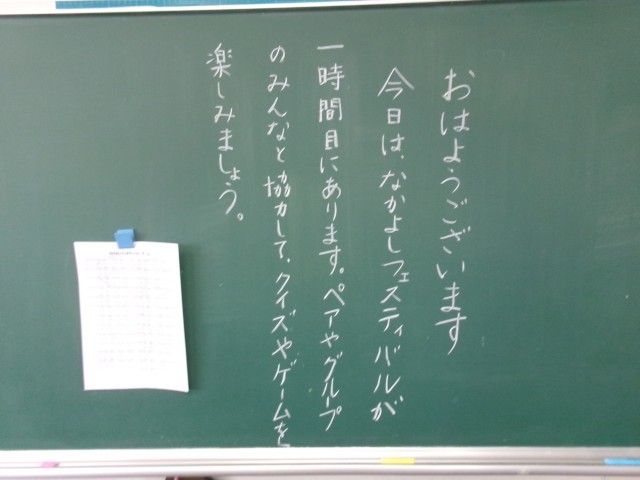 おはようございます
今日は、なかよしフェスティバルが
一時間目にあります。ペアやグループ
のみんなと協力して、クイズやゲームを
楽しみましょう。